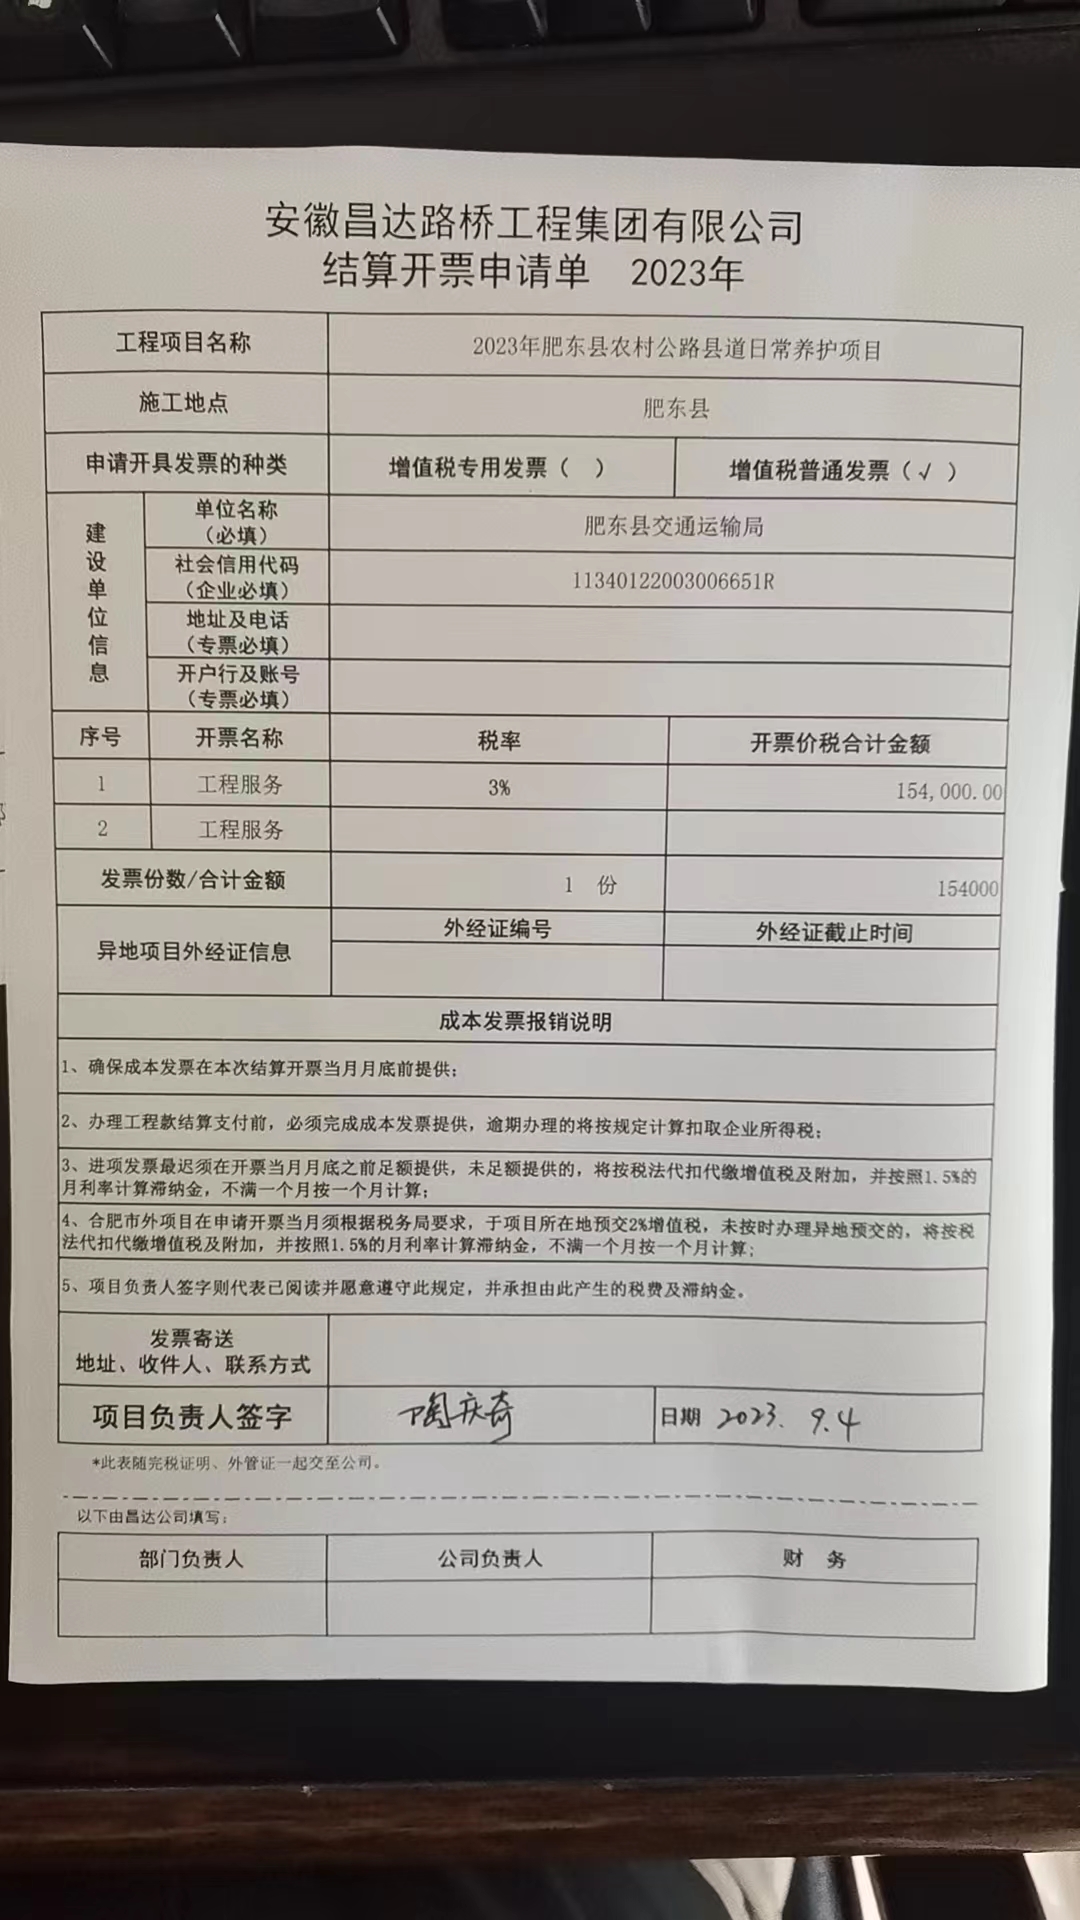 安徽昌达路桥工程集团有限公司
结算开票申请单 2023年
工程项目名称 2023年肥东县农村公路县道日常养护项目
施工地点 肥东县
申请开具发票的种类 增值税专用发票（ ） 增值税普通发票（√ ）
建设单位信息
单位名称
（必填） 肥东县交通运输局
社会信用代码
（企业必填） 11340122003006651R
地址及电话
（专票必填）
开户行及账号
（专票必填）
序号 开票名称 税率 开票价税合计金额
1 工程服务 3% 154,000.00
2 工程服务
发票份数/合计金额 1 份 154000
异地项目外经证信息 外经证编号 外经证截止时间
成本发票报销说明
1、确保成本发票在本次结算开票当月月底前提供；
2、办理工程款结算支付前，必须完成成本发票提供，逾期办理的将按规定计算扣取企业所得税；
3、进项发票最迟须在开票当月月底之前足额提供，未足额提供的，将按税法代扣代缴增值税及附加，并按照1.5%的
月利率计算滞纳金，不满一个月按一个月计算；
4、合肥市外项目在申请开票当月须根据税务局要求，于项目所在地预交2%增值税，未按时办理异地预交的，将按税
法代扣代缴增值税及附加，并按照1.5%的月利率计算滞纳金，不满一个月按一个月计算；
5、项目负责人签字则代表已阅读并愿意遵守此规定，并承担由此产生的税费及滞纳金。
发票寄送
地址、收件人、联系方式
项目负责人签字 陶庆奇 日期 2023. 9.4
*此表随完税证明、外管证一起交至公司。
以下由昌达公司填写：
部门负责人 公司负责人 财 务